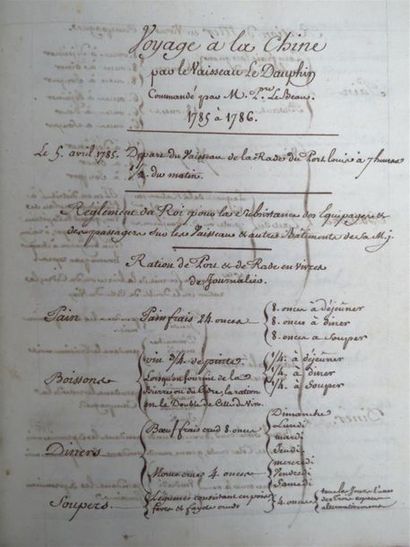 Voyage a la Chine
par le Vaisseau Le Dauphin
Commandé par M. Le Beau.
1785 à 1786.
Le 5. avril 1785. Depart du Vaisseau de la Rade du Port Louis à 7 heures
du matin.
Reglement du Roi pour la subsistance des Equipages &
des passagers sur les Vaisseaux et autres Batiments de Sa Mj.
Ration de Port & de Rade en vivres
de Journalier.
Pain
Pain frais 24 onces
8. onces à déjeuner
8. onces à diner
8. onces à Souper
Boissons
vin 3/4 de pinte.
Lorsqu'on fournit de la
Bierre ou du Cidre, la ration
en le Double de Celle du Vin.
1/4. à déjeuner
1/4. à diner
1/4. à Souper
Diners
Bœuf frais crud 8 onces
Dimanche
Lundi
mardi
Jeudi
Morue crue 4 onces
mercredi
Vendredi
Samedi
Soupers
Légumes consistant en pois
feves et fayols cruds
4 onces
tous les Jours l'une
des trois especes
alternativement